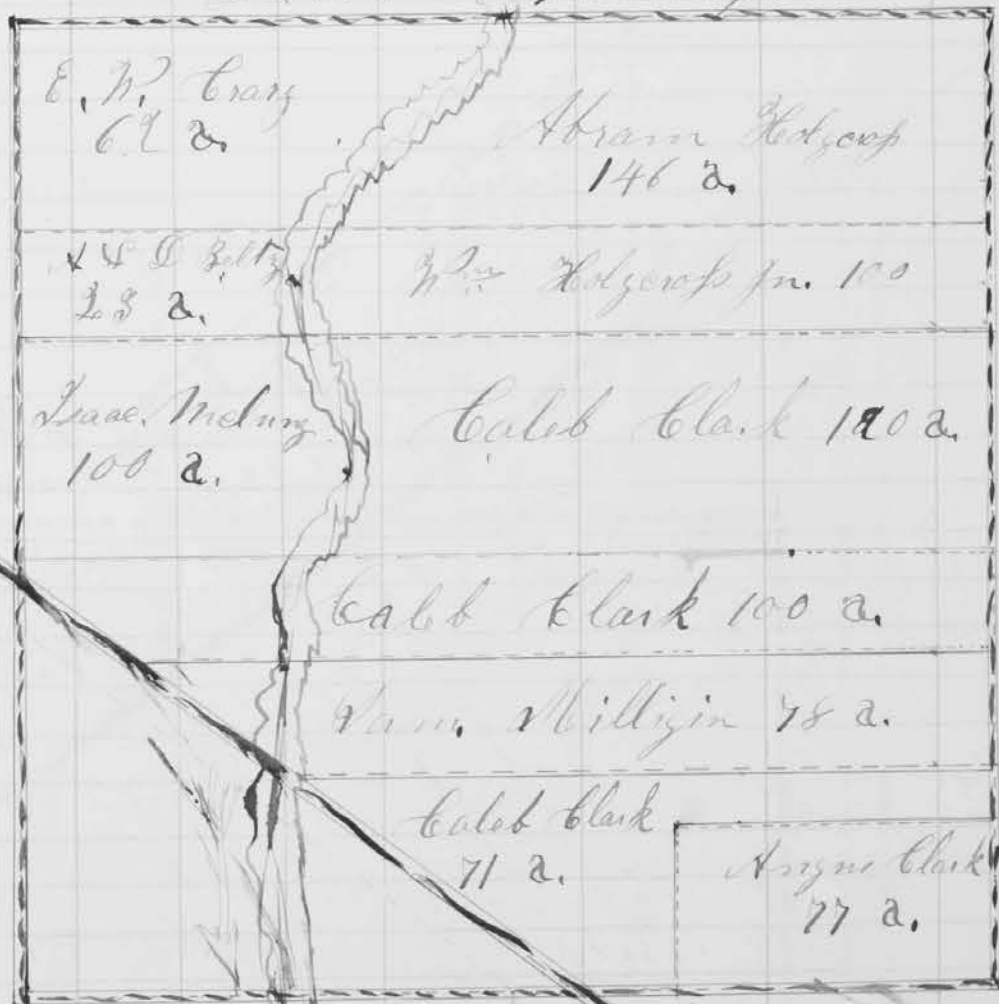 E. W. Crary
62 a.
Abram Holycross
146 a.
28 a.
Wm Holycross Jn. 100
Isaac
100 a.
Caleb Clark 120 a.
Caleb Clark 100 a.
Sam. Milligin 78 a.
Caleb Clark
71 a.
Angus Clark
77 a.